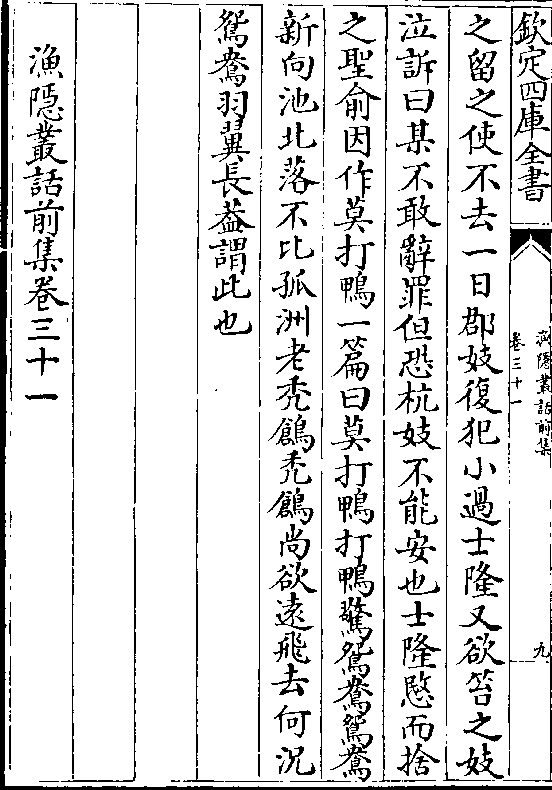 欽定四庫全書
漁隱叢話前集
卷三十一
九
之留之使不去一日郡妓復犯小過士隆又欲笞之妓
泣訴曰某不敢辭罪但恐杭妓不能安也士隆愍而捨
之聖俞因作莫打鴨一篇曰莫打鴨打鴨驚鴛鴦鴛鴦
新向池北落不比孤洲老秃鶬秃鶬尚欲遠飛去何況
鴛鴦羽翼長葢謂此也
漁隱叢話前集卷三十一